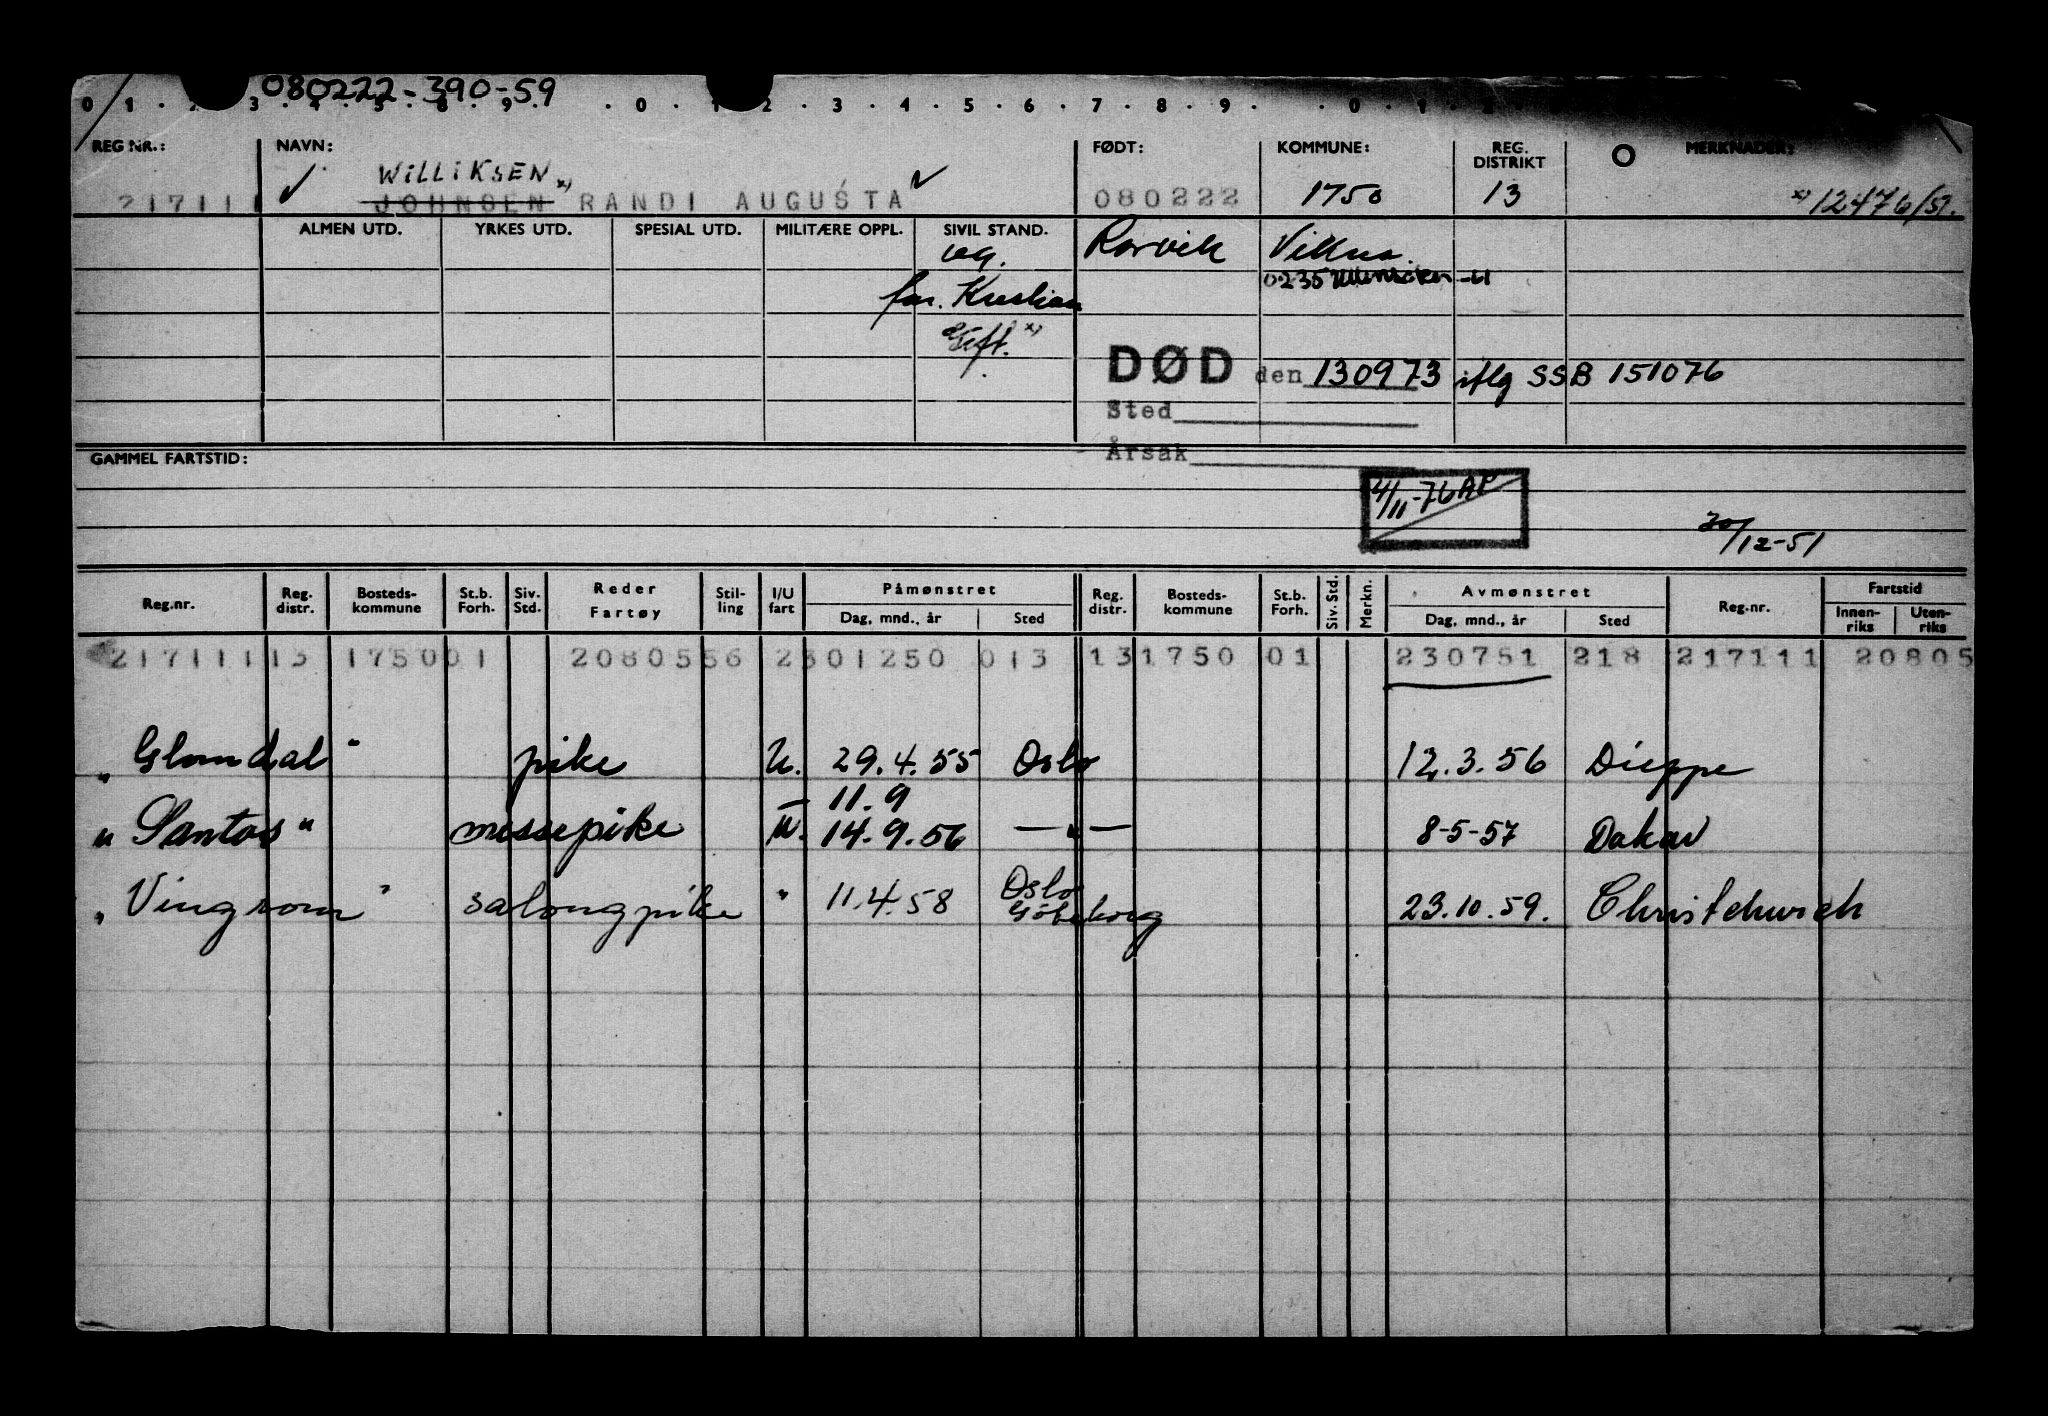 080222-390-59
0 . 1 . 2 . 3 . 4 . 5 . 6 . 8 . 9 . . 0 . 1 2 . 3 . 4 . 5 . 6 . 7 . 8 . 9 . . 0 . 1 .
REG NR.: NAVN: FØDT: KOMMUNE: REG. DISTRIKT MERKNADER:
WILLIKSEN x)
217111 ✓ JOHNSEN RANDI AUGUSTA ✓ 080222 1750 13 x) 12476/51.
ALMEN UTD. YRKES UTD. SPESIAL UTD. MILITÆRE OPPL. SIVIL STAND.
ug. Rørvik Vikna
0235 Ullensaker -61
far. Kristian
Gift. x)
DØD den 130973 iflg SSB 151076
Sted
Årsak
GAMMEL FARTSTID:
4/11-76 AP
20/12-51
Reg.nr. Reg. distr. Bosteds- kommune St.b. Forh. Siv. Std. Reder Fartøy Stil- ling I/U fart Påmønstret Dag, mnd., år Sted Reg. distr. Bosteds- kommune St.b. Forh. Siv. Std. Merkn. Avmønstret Dag, mnd., år Sted Reg.nr. Fartstid Innen- riks Uten- riks
217111 13 1750 01 2080556 2 301250 013 13 1750 01 230751 218 217111 20805
" Glomdal " pike U. 29.4.55 Oslo 12.3.56 Dieppe
11.9
" Santos " messepike U. 14.9.56 — " — 8-5-57 Dakar
Oslo
" Vingrom " salongpike " 11.4.58 Göteborg 23.10.59. Christchurch